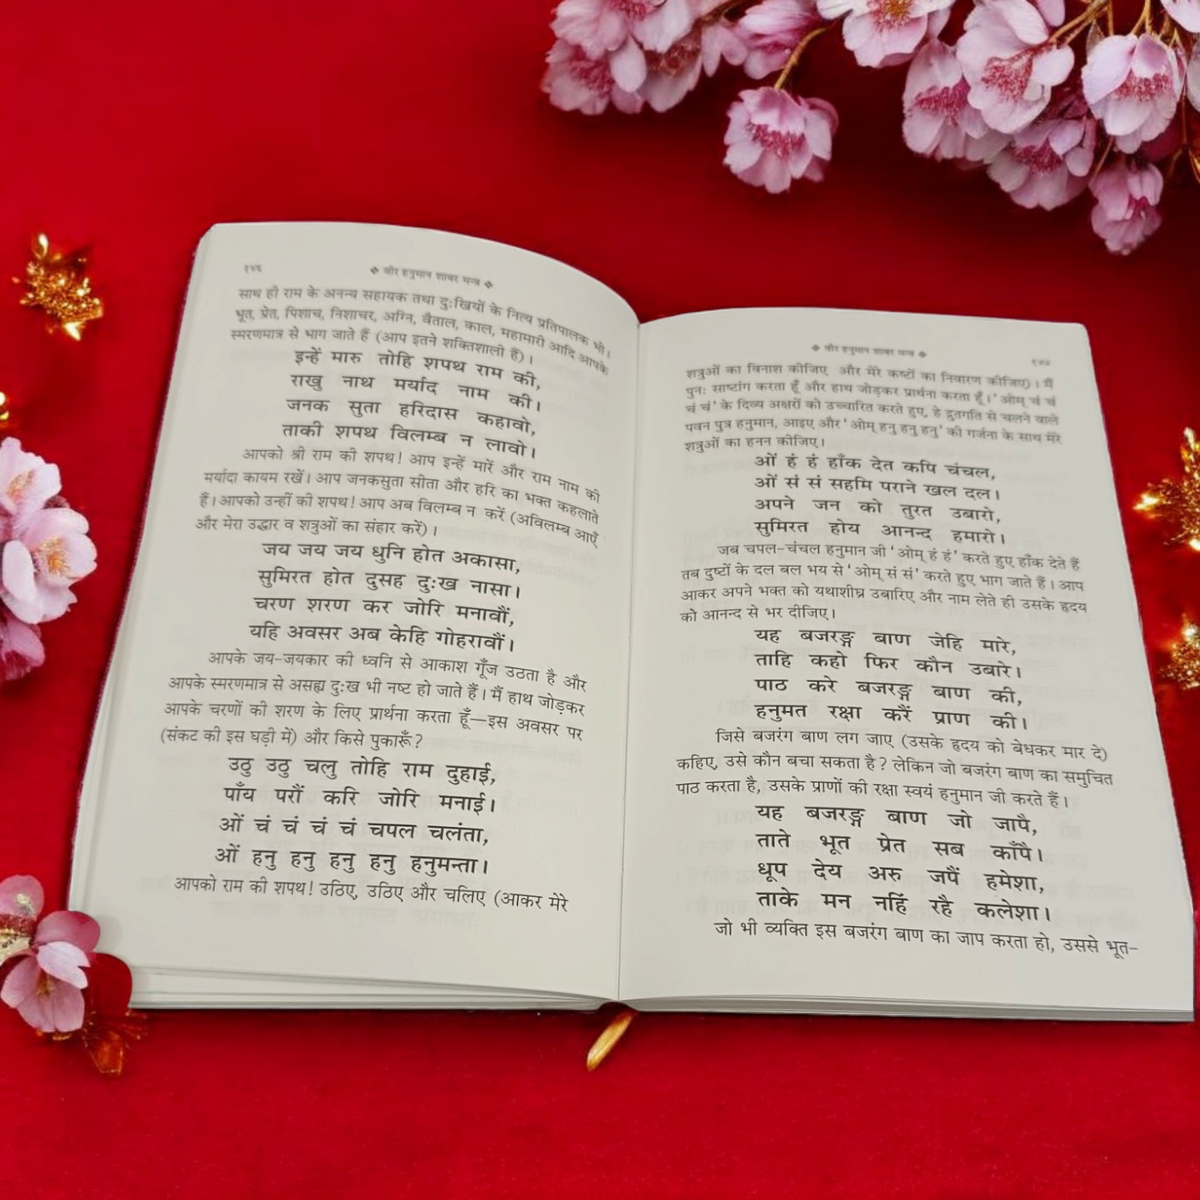 १४६
❖ वीर हनुमान शाबर मन्त्र ❖
साथ ही राम के अनन्य सहायक तथा दुःखियों के नित्य प्रतिपालक भी।
भूत, प्रेत, पिशाच, निशाचर, अग्नि, वैताल, काल, महामारी आदि आपके
स्मरणमात्र से भाग जाते हैं (आप इतने शक्तिशाली हैं)।
इन्हें मारु तोहि शपथ राम की,
राखु नाथ मर्याद नाम की।
जनक सुता हरिदास कहावो,
ताकी शपथ विलम्ब न लावो।
आपको श्री राम की शपथ! आप इन्हें मारें और राम नाम की
मर्यादा कायम रखें। आप जनकसुता सीता और हरि का भक्त कहलाते
हैं। आपको उन्हीं की शपथ! आप अब विलम्ब न करें (अविलम्ब आएँ
और मेरा उद्धार व शत्रुओं का संहार करें)।
जय जय जय धुनि होत अकासा,
सुमिरत होत दुसह दुःख नासा।
चरण शरण कर जोरि मनावौं,
यहि अवसर अब केहि गोहरावौं।
आपके जय-जयकार की ध्वनि से आकाश गूँज उठता है और
आपके स्मरणमात्र से असह्य दुःख भी नष्ट हो जाते हैं। मैं हाथ जोड़कर
आपके चरणों की शरण के लिए प्रार्थना करता हूँ—इस अवसर पर
(संकट की इस घड़ी में) और किसे पुकारूँ?
उठु उठु चलु तोहि राम दुहाई,
पाँय परौं करि जोरि मनाई।
ओं चं चं चं चं चपल चलंता,
ओं हनु हनु हनु हनु हनुमन्ता।
आपको राम की शपथ! उठिए, उठिए और चलिए (आकर मेरे
❖ वीर हनुमान शाबर मन्त्र ❖
१४७
शत्रुओं का विनाश कीजिए और मेरे कष्टों का निवारण कीजिए)। मैं
पुनः साष्टांग करता हूँ और हाथ जोड़कर प्रार्थना करता हूँ। 'ओम् चं चं
चं चं' के दिव्य अक्षरों को उच्चारित करते हुए, हे द्रुतगति से चलने वाले
पवन पुत्र हनुमान, आइए और 'ओम् हनु हनु हनु' की गर्जना के साथ मेरे
शत्रुओं का हनन कीजिए।
ओं हं हं हाँक देत कपि चंचल,
ओं सं सं सहमि पराने खल दल।
अपने जन को तुरत उबारो,
सुमिरत होय आनन्द हमारो।
जब चपल-चंचल हनुमान जी 'ओम् हं हं' करते हुए हाँक देते हैं
तब दुष्टों के दल बल भय से 'ओम् सं सं' करते हुए भाग जाते हैं। आप
आकर अपने भक्त को यथाशीघ्र उबारिए और नाम लेते ही उसके हृदय
को आनन्द से भर दीजिए।
यह बजरङ्ग बाण जेहि मारे,
ताहि कहो फिर कौन उबारे।
पाठ करे बजरङ्ग बाण की,
हनुमत रक्षा करैं प्राण की।
जिसे बजरंग बाण लग जाए (उसके हृदय को बेधकर मार दे)
कहिए, उसे कौन बचा सकता है? लेकिन जो बजरंग बाण का समुचित
पाठ करता है, उसके प्राणों की रक्षा स्वयं हनुमान जी करते हैं।
यह बजरङ्ग बाण जो जापै,
ताते भूत प्रेत सब काँपै।
धूप देय अरु जपैं हमेशा,
ताके मन नहिं रहै कलेशा।
जो भी व्यक्ति इस बजरंग बाण का जाप करता हो, उससे भूत-